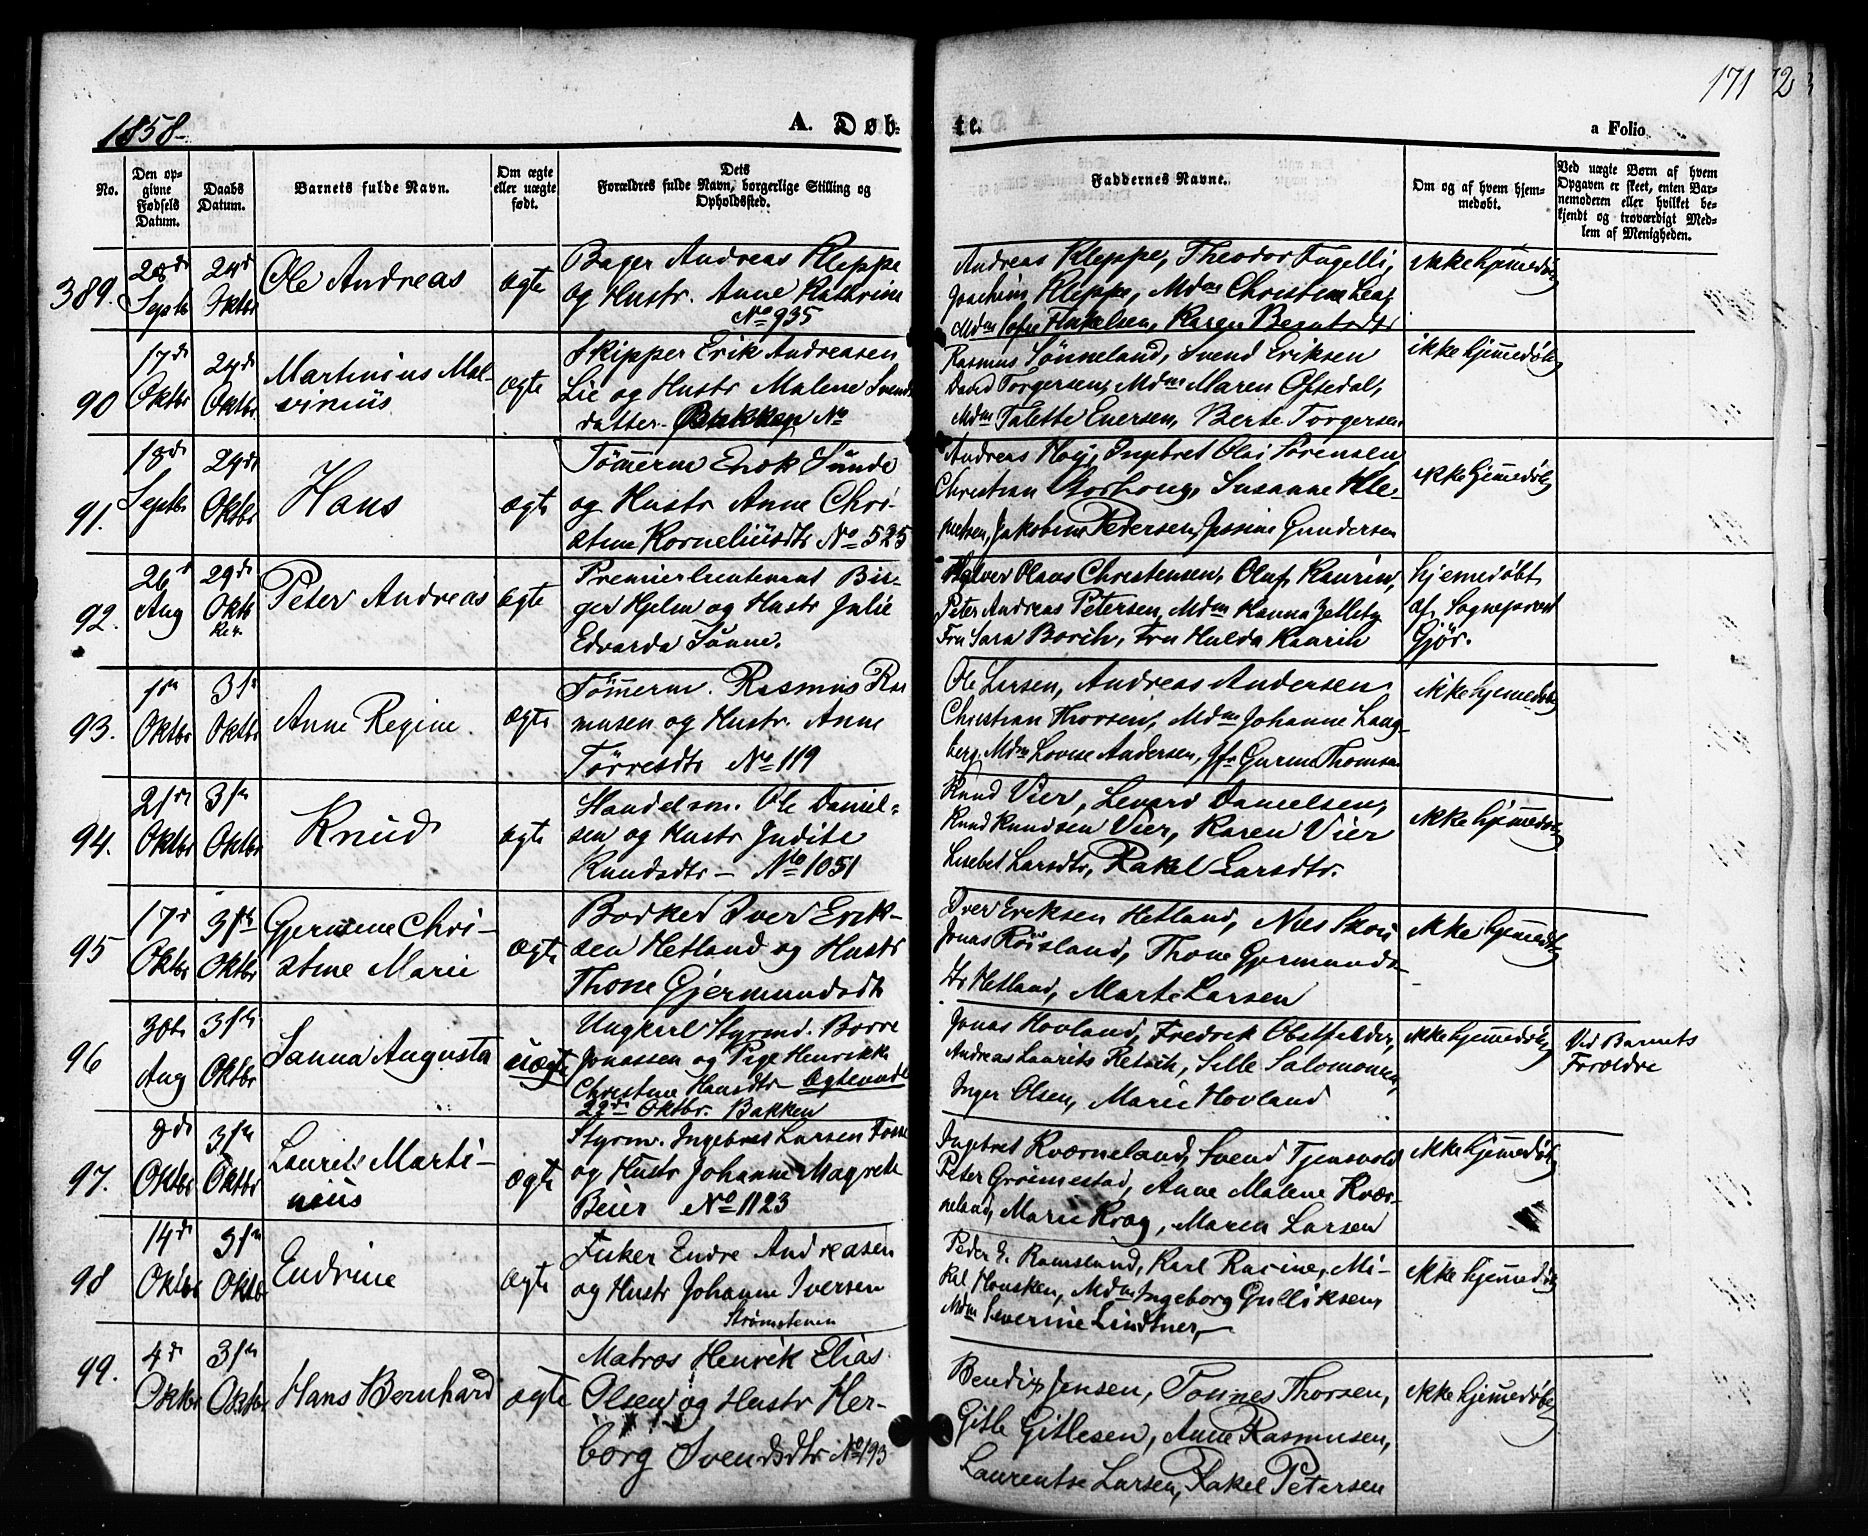 171 72
1858.
A. Døb-
te.
a Folio
No.
Den op-
givne
Fødsels
Datum.
Daabs
Datum.
Barnets fulde Navn.
Om ægte
eller uægte
født.
Dets
Forældres fulde Navn, borgerlige Stilling og
Opholdssted.
Faddernes Navne.
Om og af hvem hjem-
medøbt.
Ved uægte Børn af hvem
Opgaven er skeet, enten Bar-
nemoderen eller hvilket be-
kjendt og troværdigt Med-
lem af Menigheden.
389.
28de Septb
24d Oktbr
Ole Andreas
ægte
Bager Andreas Kleppe
og Hustr. Anne Kathrine
No 935
Andreas Kleppe, Theodor Fugelli,
Joachim Kleppe, Mdm Christine
Mdm Sofie Karen
ikke hjemmedøbt
90
17de Oktbr
24de Oktbr
Martinius Mal-
vinius
ægte
Skipper Erik Andreasen
Lie og Hustr Malene Svends
datter. No
Rasmus Tønneland, Svend Eriksen
David Torgersen, Mdm Maren Oftedal,
Mdm Talette Eversen, Berte Torgersen
ikke hjemmedøbt
91.
18de Septbr
24de Oktbr
Hans
ægte
Tømmerm Enok Sunde
og Hustr Anne Chri-
stine Korneliusdtr No 525
Andreas Høy, Ingebret Olai Sørensen
Christian Susanne Kle-
metsen, Jakobine Pedersen, Jessine Gundersen
ikke hjemmedøbt
92.
26d Aug
29de Oktb
Peter Andreas
ægte
Premierlieutenant Bir-
ger Hjelm og Hustr Julie
Edvarda Sünne.
Halvor Olaus Christensen, Oluf Kaurin,
Peter Andreas Petersen, Mdm Hanna Zetlitz
Fru Sara Borch, Fru Hulda Kaurin
hjemedøbt
af Sogneprest
Gjør.
93.
1ste Oktbr
31te Oktbr
Anne Regine
ægte
Tømmerm. Rasmus Ras
musen og Hustr. Anne
Tørresdtr No 119
Ole Larsen, Andreas Andersen,
Christian Thorsen, Mdm Johanne Lang-
berg, Mdm Lovise Andersen, Gurine Thomsen
ikke hjemmedøbt
94.
21de Oktbr
31te Oktbr
Knud
ægte
Handelsm. Ole Daniel-
sen og Hustr Judite
Knudsdtr – No 1051
Knud Vier, Lenard Danielsen,
Knud Knudsen Vier, Karen Vier
Lisebet Larsdtr, Rakel Larsdtr.
ikke hjemmedøbt
95
17d Oktbr
31te Oktbr
Gjermine Chri-
stine Marie
ægte
Bødker Iver Erik-
sen Hetland og Hustr
Thone Gjermundsdtr
Iver Eriksen Hetland, Nils Skou
Jonas Røisland, Thone Gjermunds-
dtr Hetland, Marte Larsen
ikke hjemmedøbt
96
30te Aug
31te Oktbr
Sanna Augusta
uægte
Ungkarl Styrmd. Borre
Jonassen og Pige Henrikke
Christine Hansdtr – Ægteviede
22de Oktbr. Bakken
Jonas Hovland, Fredrik Obstfelder,
Andreas Laurits Sille Salomonsen,
Inger Olsen, Marie Hovland
ikke hjemmedøbt
Ved Barnets
Forældre
97.
2de Oktbr
31te Oktbr
Laurits Marti-
nius
ægte
Styrm. Ingebret Larsen Fosse
og Hustr Johanne Magrete
Beier No 1123
Ingebret Kværneland, Svend Tjensvold
Peter Grønnestad, Anne Malene Kvær-
neland, Marie Krog, Maren Larsen
ikke hjemmedøbt
98
14de Oktbr
31te Oktbr
Endrine
ægte
Fisker Endre Andreasen
og Hustr Johanne Iversen
Strømstenen
Peder E. Ramsland, Karl Racine, Mi-
kal Housken, Mdm Ingeborg Gulliksen,
Mdm Severine Lindtner,
ikke hjemmedøbt
99.
4de Oktbr
31te Oktbr
Hans Bernhard
ægte
Matros Henrik Elias
Olsen og Hustr Her-
borg Svendsdtr No 193
Bendix Jensen, Tønnes Thorsen,
Gitle Gitlesen, Anne Rasmusen,
Laurentse Larsen, Rakel Petersen
ikke hjemmedøbt